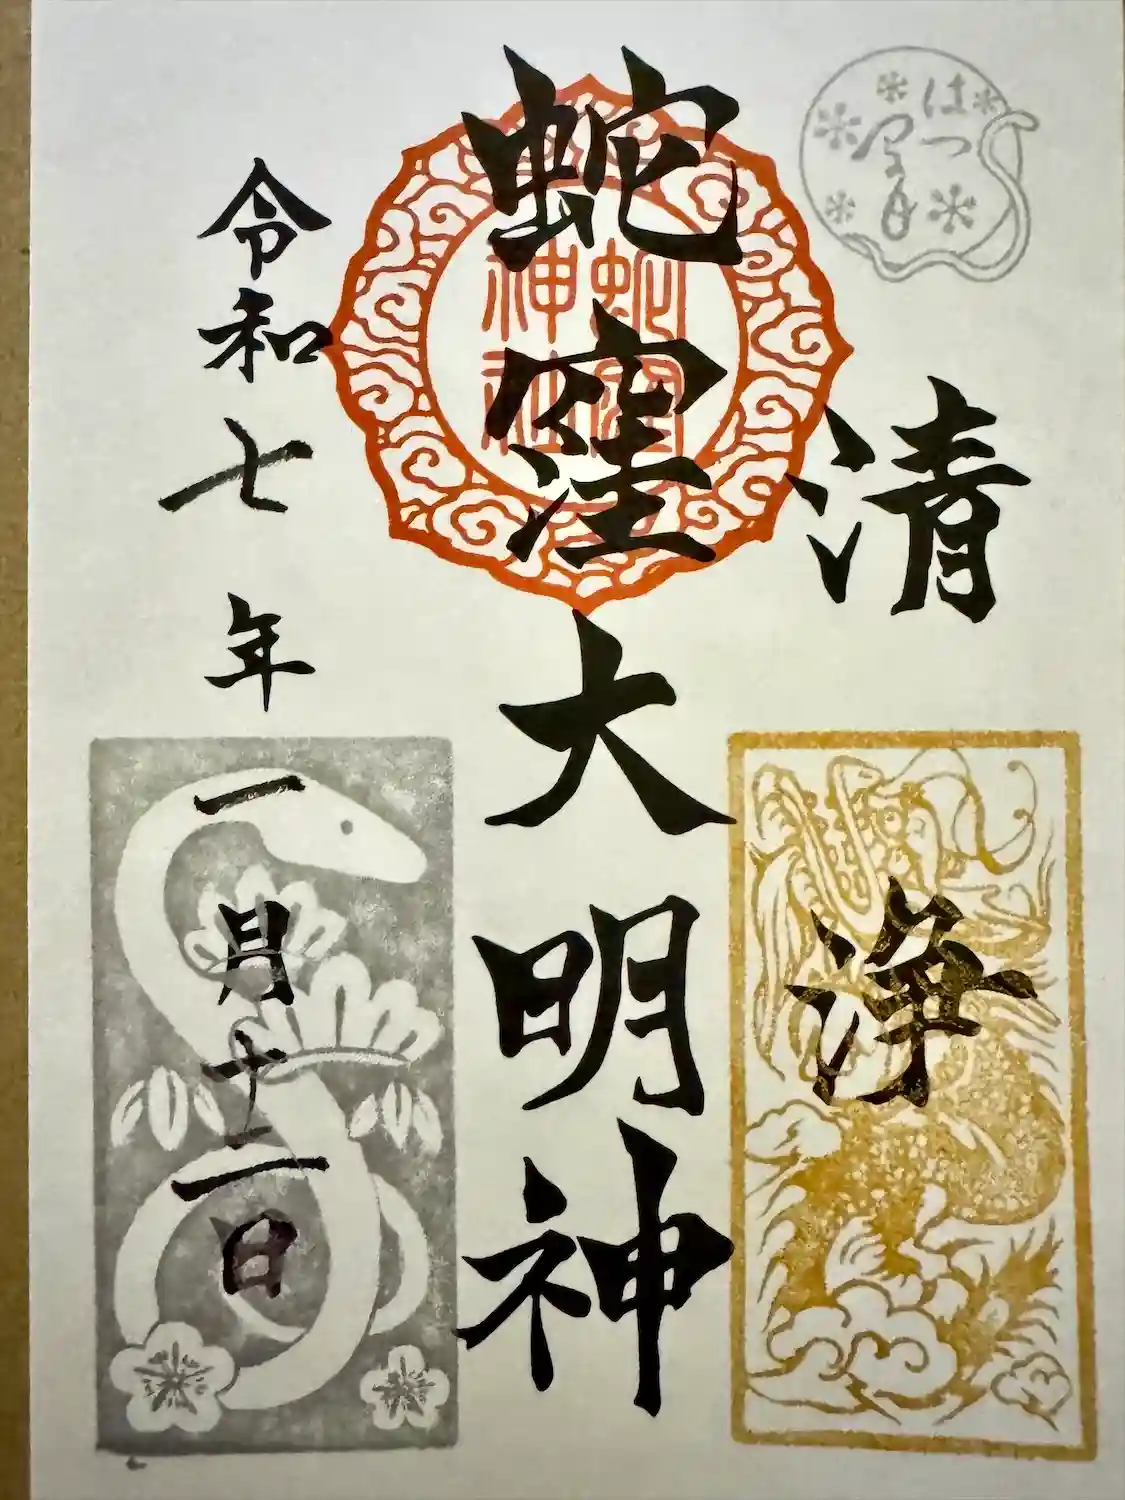 はつ
清浄
蛇窪大明神
蛇窪
神社
令和七年一月十二日